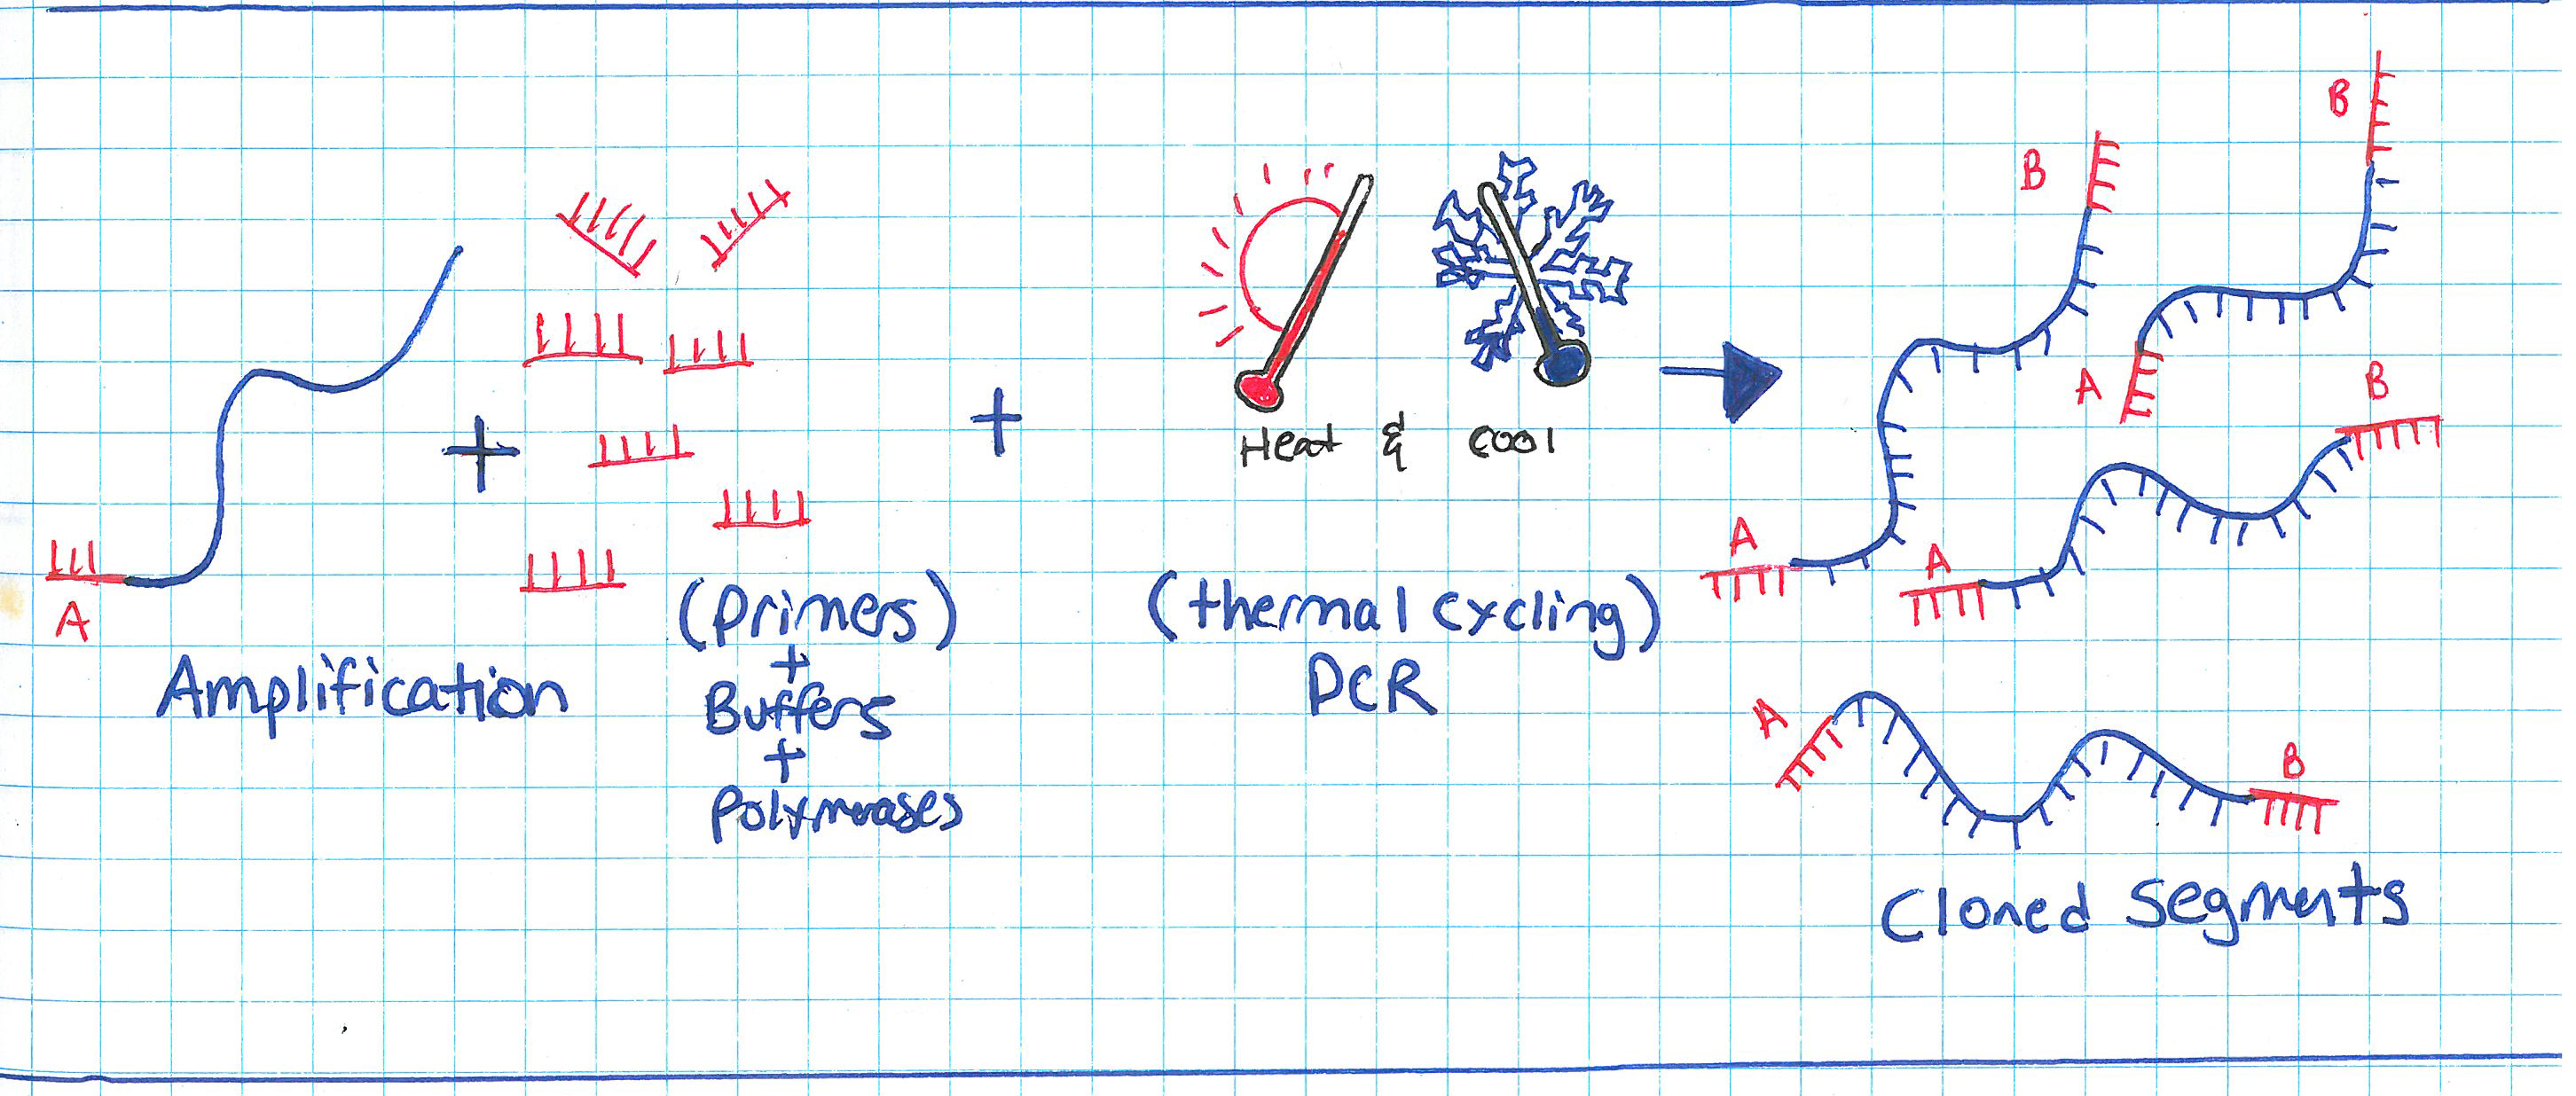 A
Amplification
+
(primers)
+
Buffers
+
Polymerases
+
Heat & cool
(thermal cycling)
PCR
A
B
A
B
A
B
A
B
Cloned segments